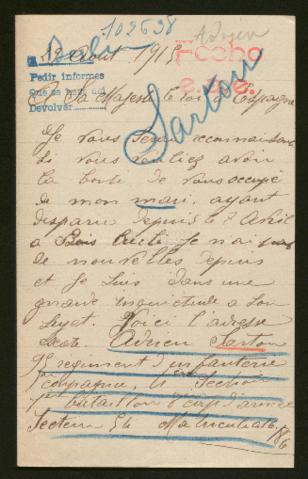 102638
Adrien
12 Août 191
Fecha
Pedir informes
Devolver
Sartou
a Sa Majesté le roi d'Espagne
Je vous serai reconnaissante
si vous vouliez avoir
la bonté de vous occuper
de mon mari, ayant
disparu depuis le 7 Avril
a Bois brulé Je n'ai
de nouvelles depuis
et je suis dans une
grande inquietude a son
sujet. Voici l'adresse
Adrien Sartou
regiment d'infanterie
compagnie, Section
bataillon corps d'armée
Secteur Matricule